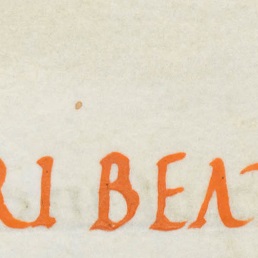 RI BEAT